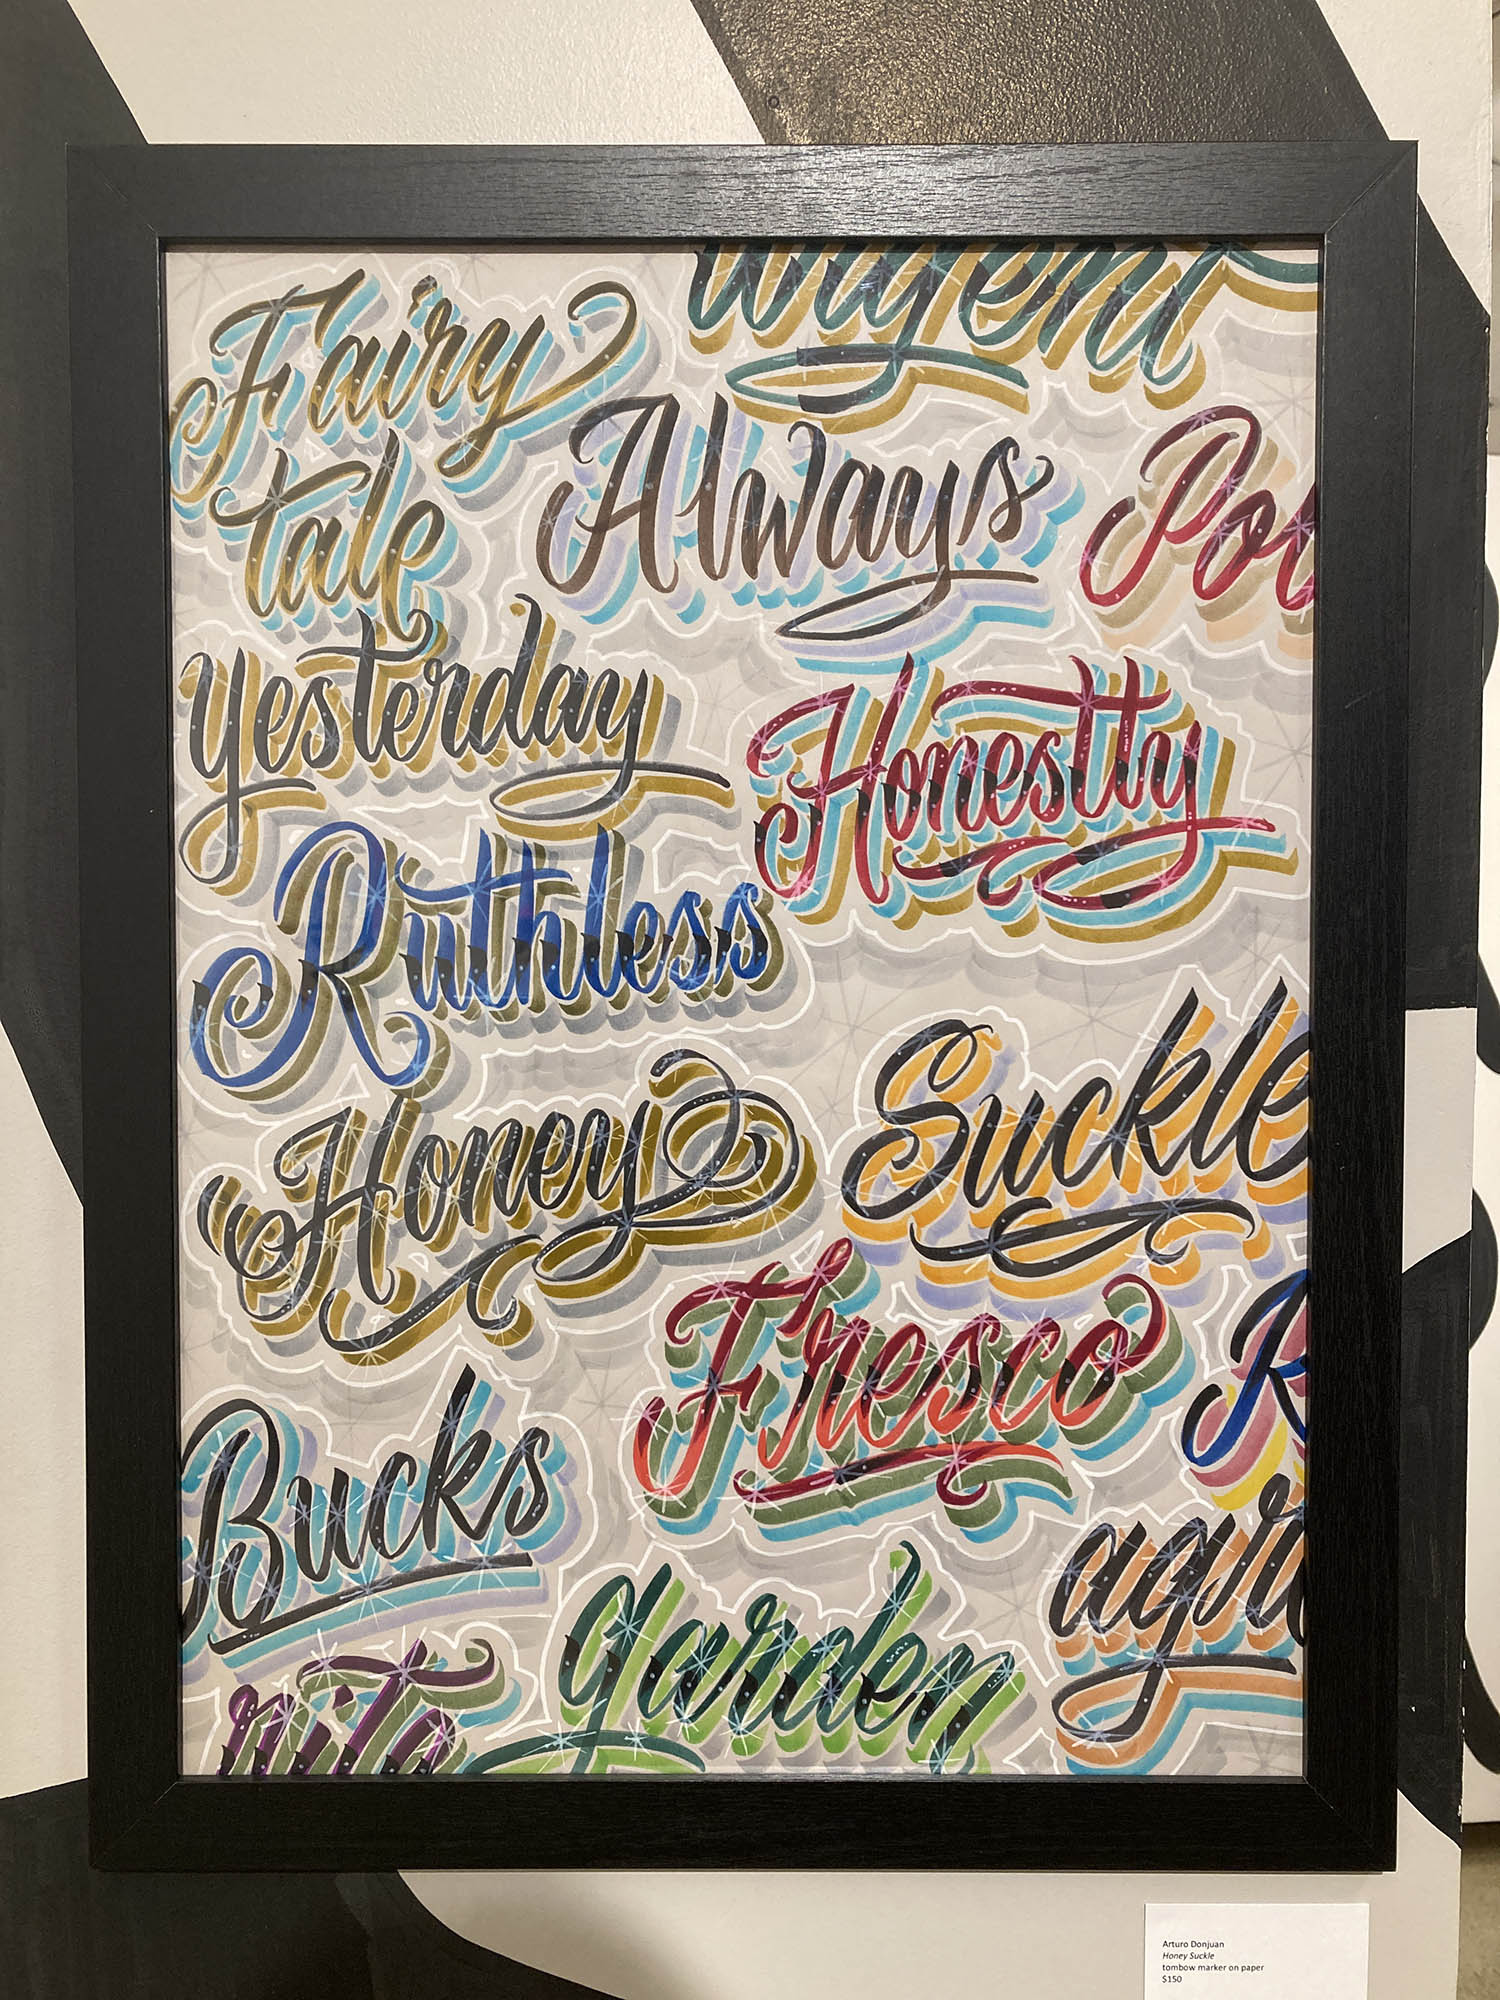 Fairy
tale
Always
yesterday
Honestty
Ruthless
Honey
Suckle
Fresco
R
Bucks
garden
Arturo Donjuan
Honey Suckle
tombow marker on paper
$150